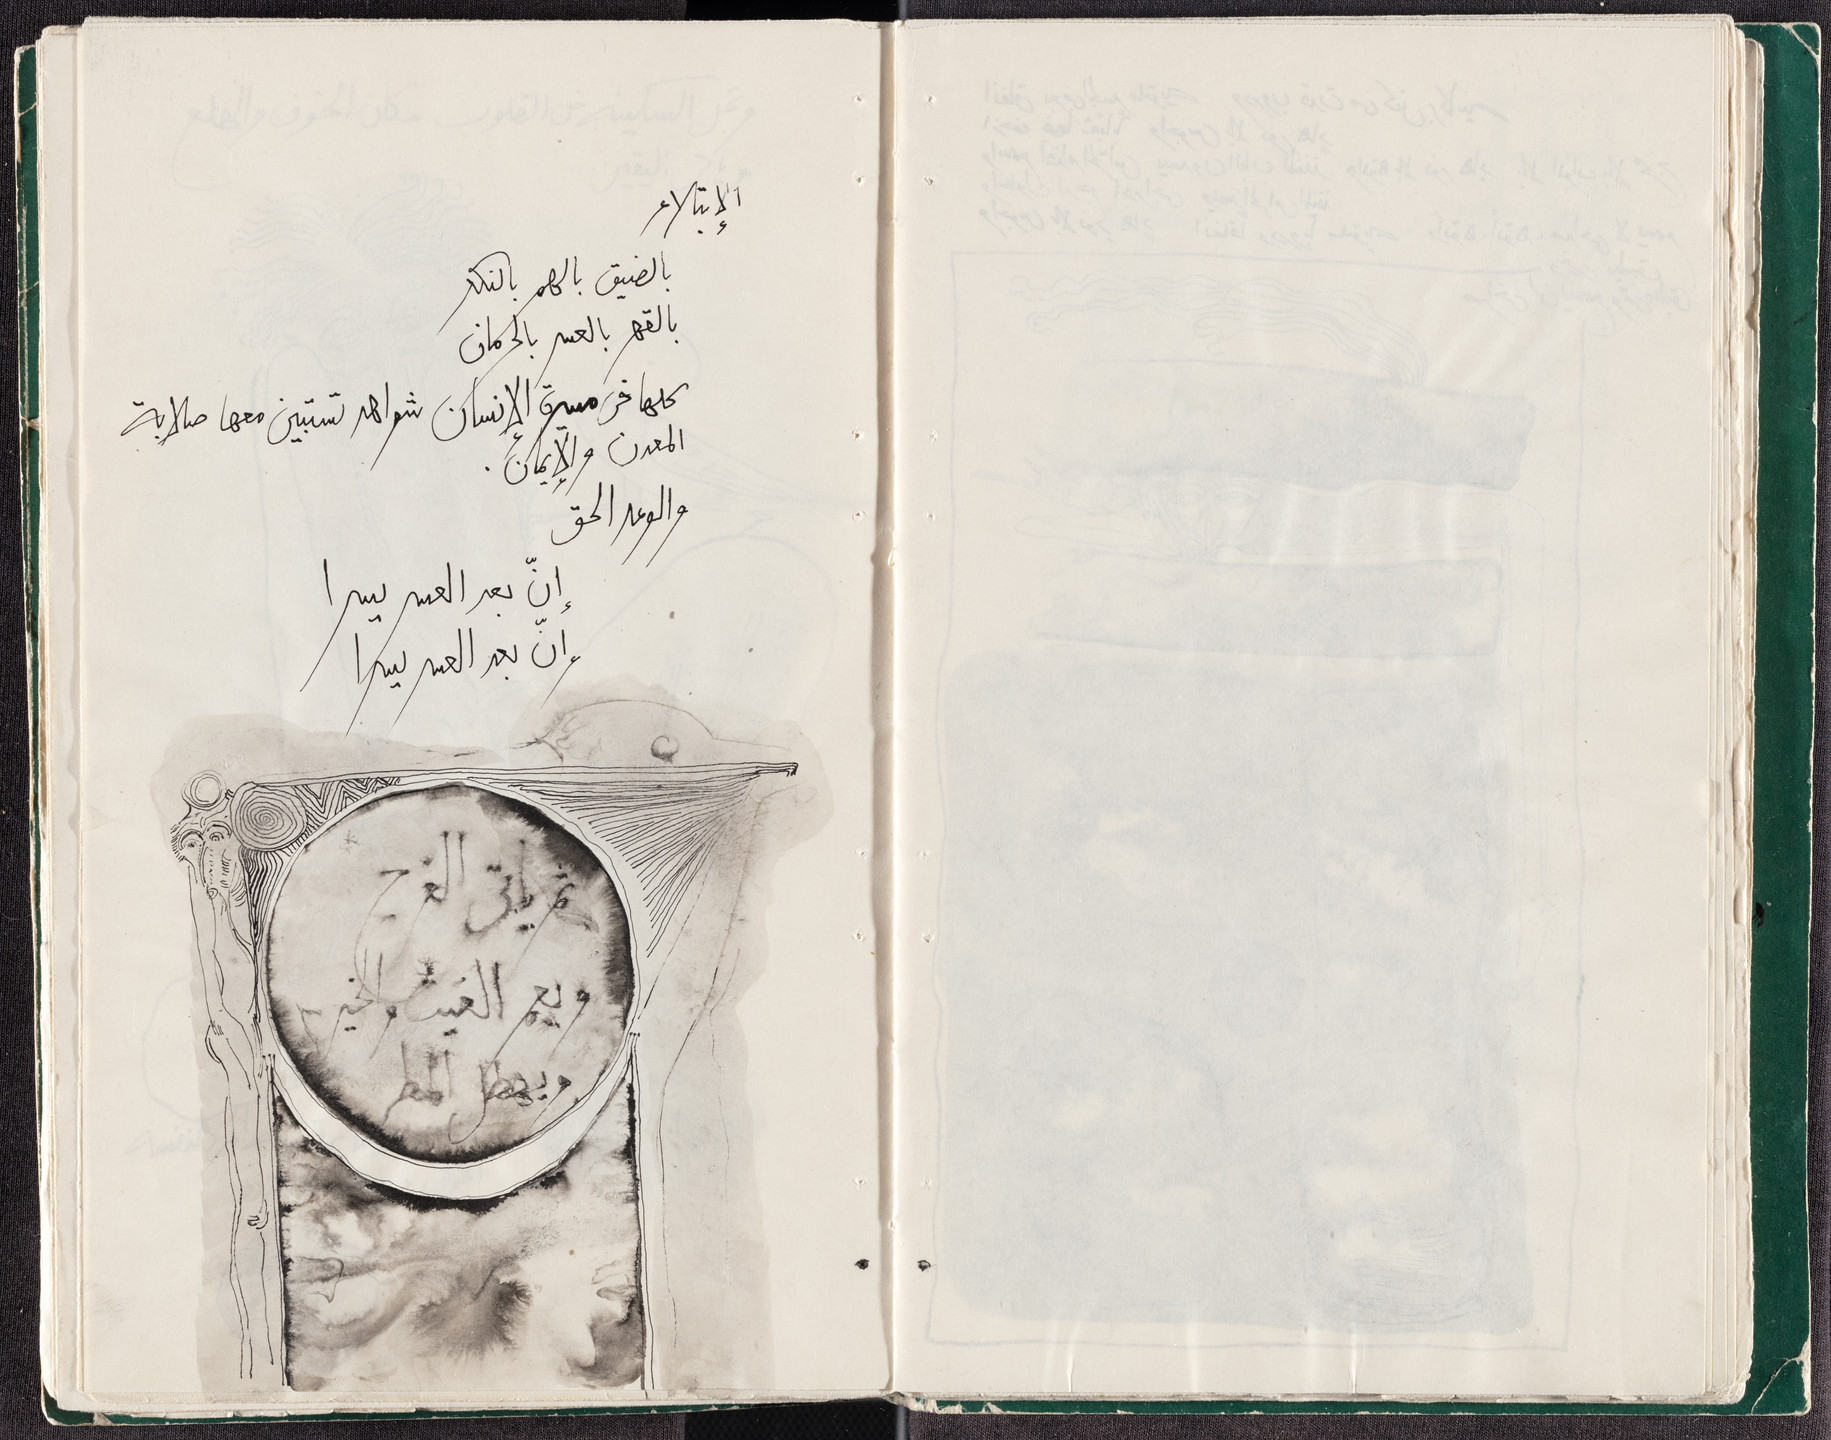 الإبتلاء
بالضيق بالهم بالنكد
بالقهر بالعسر بالحرمان
كلها في مسيرة الإنسان شواهد تستبين معها صلابة
المعدن والإيمان .
والوعد الحق
إنّ بعد العسر يسرا
إنّ بعد العسر يسرا
ثم يأتى الفرج
ويعم الغيث والخير
ويهطل المطر